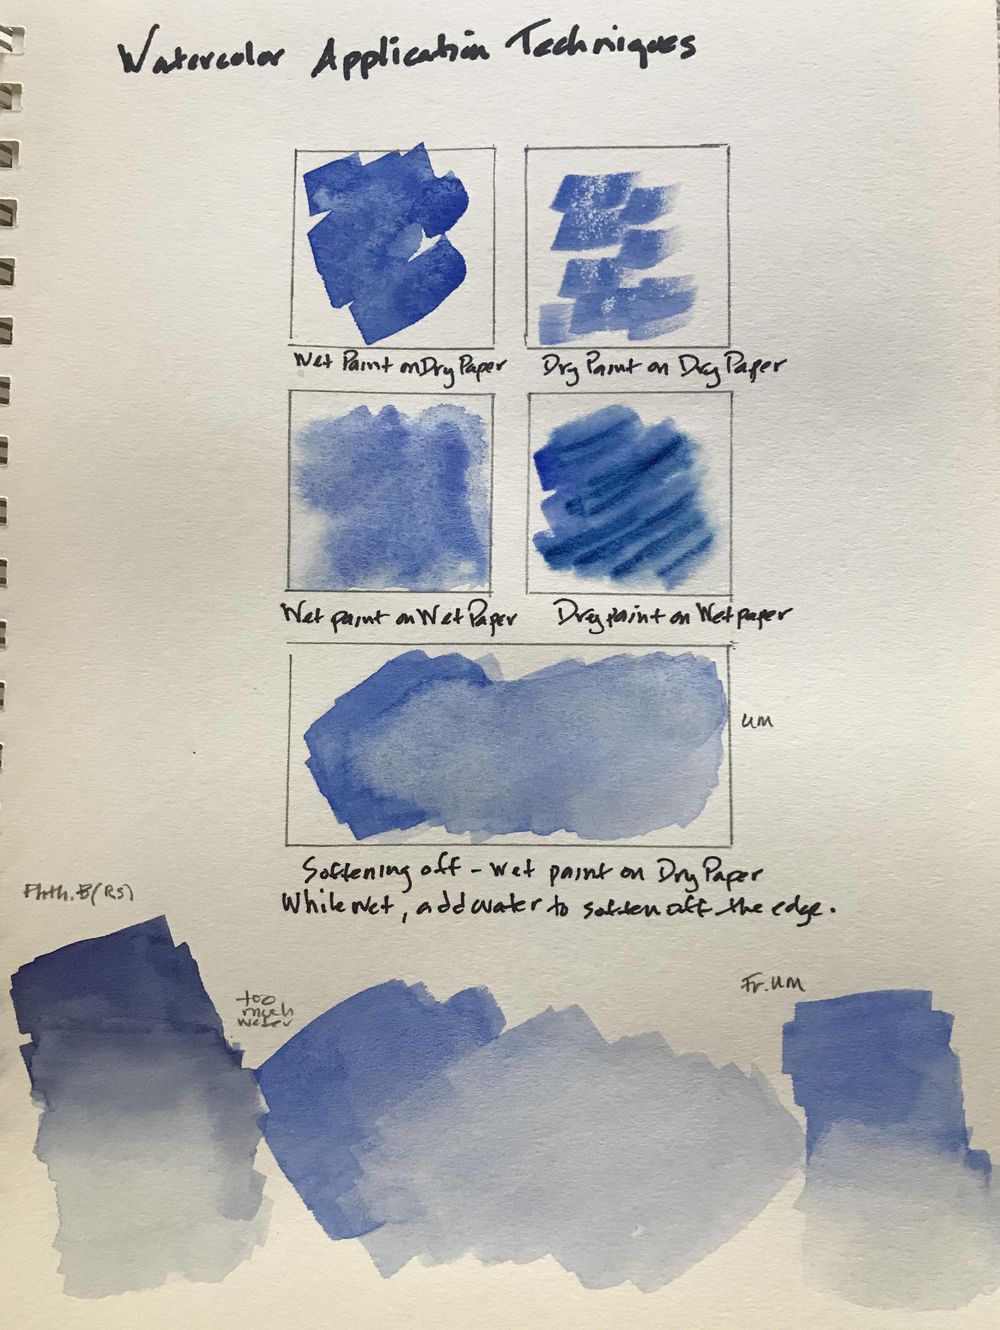 Watercolor Application Techniques
Wet Paint on Dry Paper
Dry Paint on Dry Paper
Wet paint on Wet Paper
Dry paint on Wet paper
UM
Softening off - wet paint on Dry Paper
While wet, add water to soften off the edge.
(RS)
too
much
water
Fr. UM